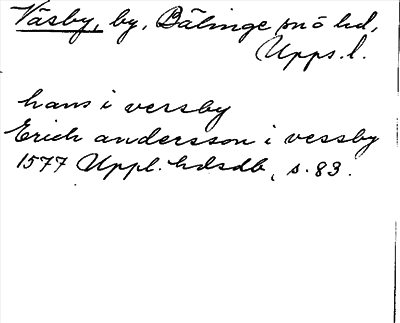 Väsby, by, Bälinge snö hd,
Upps. l.
hans i versby
Erich andersson i vessby
1577 Uppl. hdsdb, s. 83.